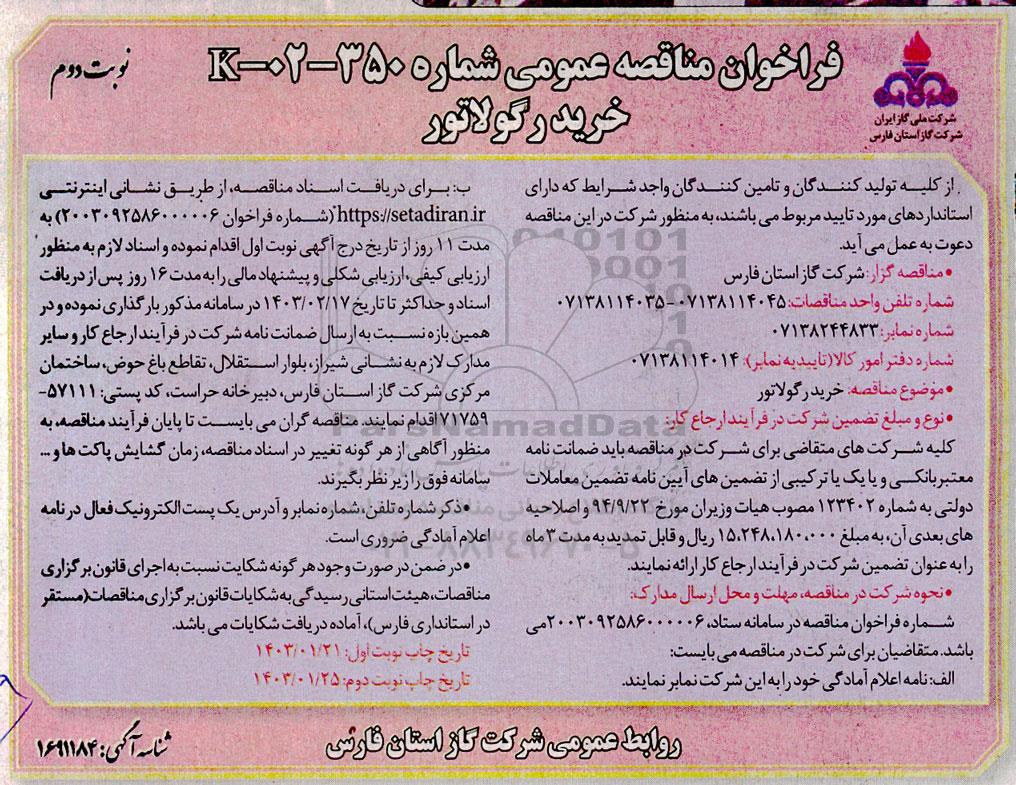 فراخوان مناقصه عمومی شماره ۳۵۰-۰۲-K
نوبت دوم
خرید رگولاتور
شرکت ملی گاز ایران
شرکت گاز استان فارس
از کلیه تولید کنندگان و تامین کنندگان واجد شرایط که دارای
استانداردهای مورد تایید مربوط می باشند، به منظور شرکت در این مناقصه
دعوت به عمل می آید.
•مناقصه گزار: شرکت گاز استان فارس
شماره تلفن واحد مناقصات: ۰۷۱۳۸۱۱۴۰۴۵-۰۷۱۳۸۱۱۴۰۳۵
شماره نمابر: ۰۷۱۳۸۲۴۴۸۳۳
شماره دفتر امور کالا(تاییدیه نمابر): ۰۷۱۳۸۱۱۴۰۱۴
•موضوع مناقصه: خرید رگولاتور
•نوع و مبلغ تضمین شرکت در فرآیند ارجاع کار:
کلیه شرکت های متقاضی برای شرکت در مناقصه باید ضمانت نامه
معتبر بانکی و یا یک یا ترکیبی از تضمین های آیین نامه تضمین معاملات
دولتی به شماره ۱۲۳۴۰۲ مصوب هیات وزیران مورخ ۹۴/۹/۲۲ و اصلاحیه
های بعدی آن، به مبلغ ۱۵،۲۴۸،۱۸۰،۰۰۰ ریال و قابل تمدید به مدت ۳ ماه
را به عنوان تضمین شرکت در فرآیند ارجاع کار ارائه نمایند.
•نحوه شرکت در مناقصه، مهلت و محل ارسال مدارک:
شماره فراخوان مناقصه در سامانه ستاد، ۲۰۰۳۰۹۲۵۸۶۰۰۰۰۰۶می
باشد. متقاضیان برای شرکت در مناقصه می بایست:
الف: نامه اعلام آمادگی خود را به این شرکت نمابر نمایند.
ب: برای دریافت اسناد مناقصه، از طریق نشانی اینترنتی
https://setadiran.ir (شماره فراخوان ۲۰۰۳۰۹۲۵۸۶۰۰۰۰۰۶) به
مدت ۱۱ روز از تاریخ درج آگهی نوبت اول اقدام نموده و اسناد لازم به منظور
ارزیابی کیفی، ارزیابی شکلی و پیشنهاد مالی را به مدت ۱۶ روز پس از دریافت
اسناد و حداکثر تا تاریخ ۱۴۰۳/۰۲/۱۷ در سامانه مذکور بارگذاری نموده و در
همین بازه نسبت به ارسال ضمانت نامه شرکت در فرآیند ارجاع کار و سایر
مدارک لازم به نشانی شیراز، بلوار استقلال، تقاطع باغ حوض، ساختمان
مرکزی شرکت گاز استان فارس، دبیرخانه حراست، کد پستی: ۵۷۱۱۱-
۷۱۷۵۹ اقدام نمایند. مناقصه گران می بایست تا پایان فرآیند مناقصه، به
منظور آگاهی از هر گونه تغییر در اسناد مناقصه، زمان گشایش پاکت ها و...
سامانه فوق را زیر نظر بگیرند.
•ذکر شماره تلفن، شماره نمابر و آدرس یک پست الکترونیک فعال در نامه
اعلام آمادگی ضروری است.
•در ضمن در صورت وجود هر گونه شکایت نسبت به اجرای قانون برگزاری
مناقصات، هیئت استانی رسیدگی به شکایات قانون برگزاری مناقصات(مستقر
در استانداری فارس)، آماده دریافت شکایات می باشد.
تاریخ چاپ نوبت اول: ۱۴۰۳/۰۱/۲۱
تاریخ چاپ نوبت دوم: ۱۴۰۳/۰۱/۲۵
روابط عمومی شرکت گاز استان فارس
شناسه آگهی: ۱۶۹۱۱۸۴
ParsNamadData